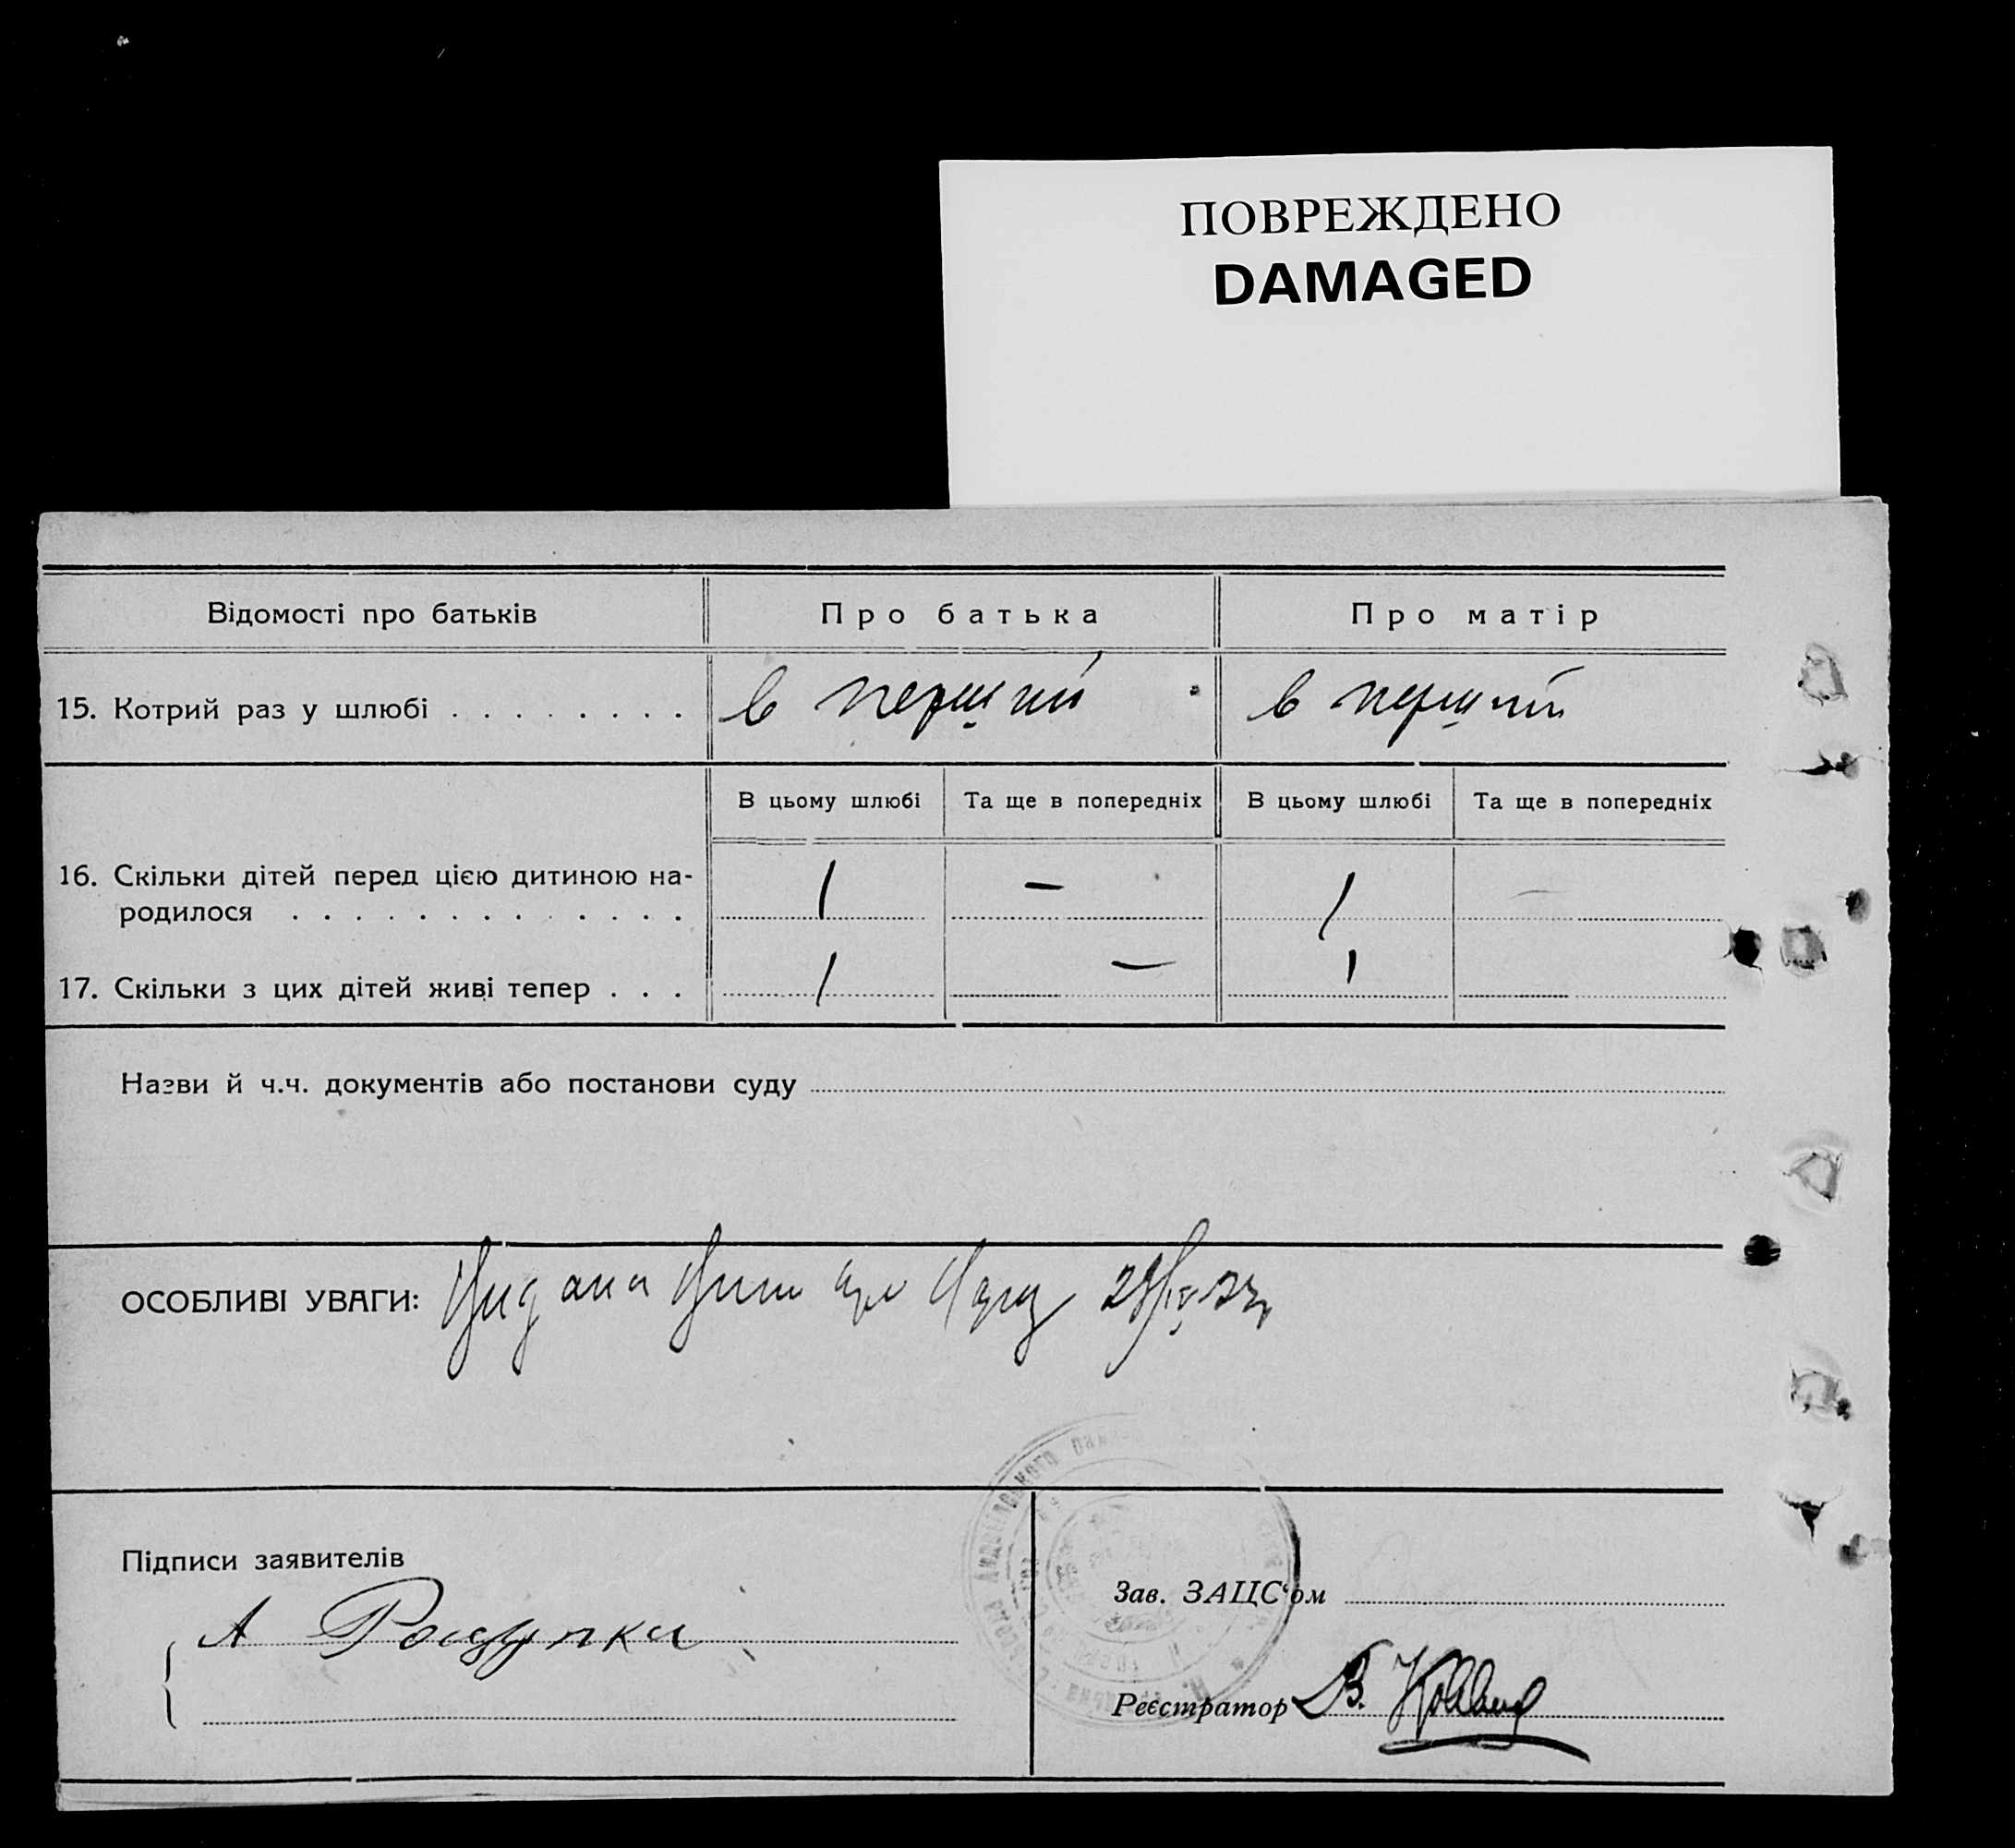 ПОВРЕЖДЕНО
DAMAGED
Відомості про батьків
Про батька
Про матір
15. Котрий раз у шлюбі . . . . . . . .
в перший
в перший
В цьому шлюбі
Та ще в попередніх
В цьому шлюбі
Та ще в попередніх
16. Скільки дітей перед цією дитиною на-
родилося . . . . . . . . . . . . .
1 — 1 —
17. Скільки з цих дітей живі тепер . . .
1 — 1
Назви й ч.ч. документів або постанови суду
ОСОБЛИВІ УВАГИ:
Підписи заявителів
А
Зав. ЗАЦС'ом
Реєстратор В.